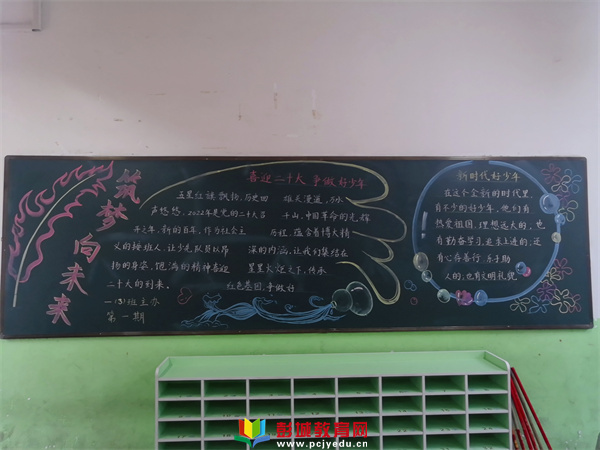 筑梦向未来
喜迎二十大 争做好少年
五星红旗飘扬,历史回
声悠悠,2022年是党的二十大召
开之年,新的百年,作为社会主
义的接班人,让少先队员以昂
扬的身姿,饱满的精神喜迎
二十大的到来。
一(3)班主办
第一期
雄关漫道,万水
千山,中国革命的光辉
历程,蕴含着博大精
深的内涵,让我们集结在
星星火炬之下,传承
红色基因,争做好
新时代好少年
在这个全新的时代里,
有不少的好少年,他们有
热爱祖国、理想远大的,也
有勤奋学习,追求上进的;还
有心存善行、乐于助
人的;也有文明礼貌
彭城教育网
www.pcjyedu.cn